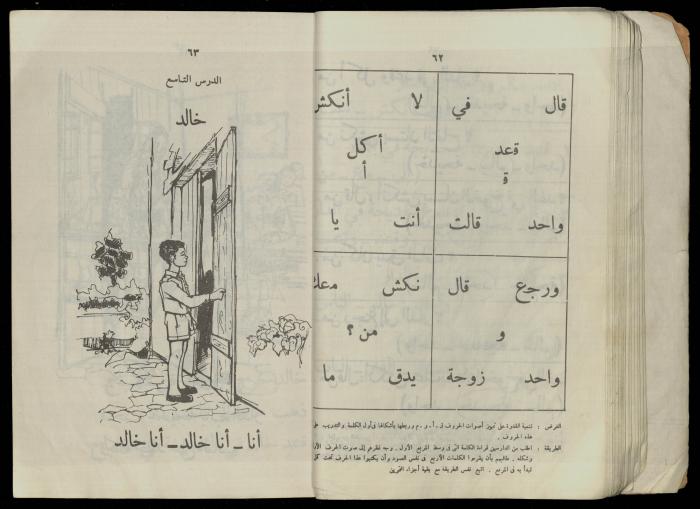 ٦٢
قال في لا أنكش
قعد أكل
ق أ
واحد قالت أنت يا
ورجع قال نكش معك
و من ؟
واحد زوجة يدق ما
الغرض : تنمية القدرة على تمييز أصوات الحروف ق ـ أ ـ و ـ م وربطها بأشكالها في أول الكلمة والتدريب على
هذه الحروف .
الطريقة : اطلب من الدارسين قراءة الكلمة التي في وسط المربع الأول . وجه نظرهم إلى صوت الحرف الأول
وشكله . طالبهم بأن يقرءوا الكلمات الأربع في نفس وأن يكتبوا هذا الحرف تحت كل
تبدأ به في المربع . اتبع نفس الطريقة مع بقية أجزاء التمرين
٦٣
الدرس التاسع
خالد
أنا ـ أنا خالد ـ أنا خالد